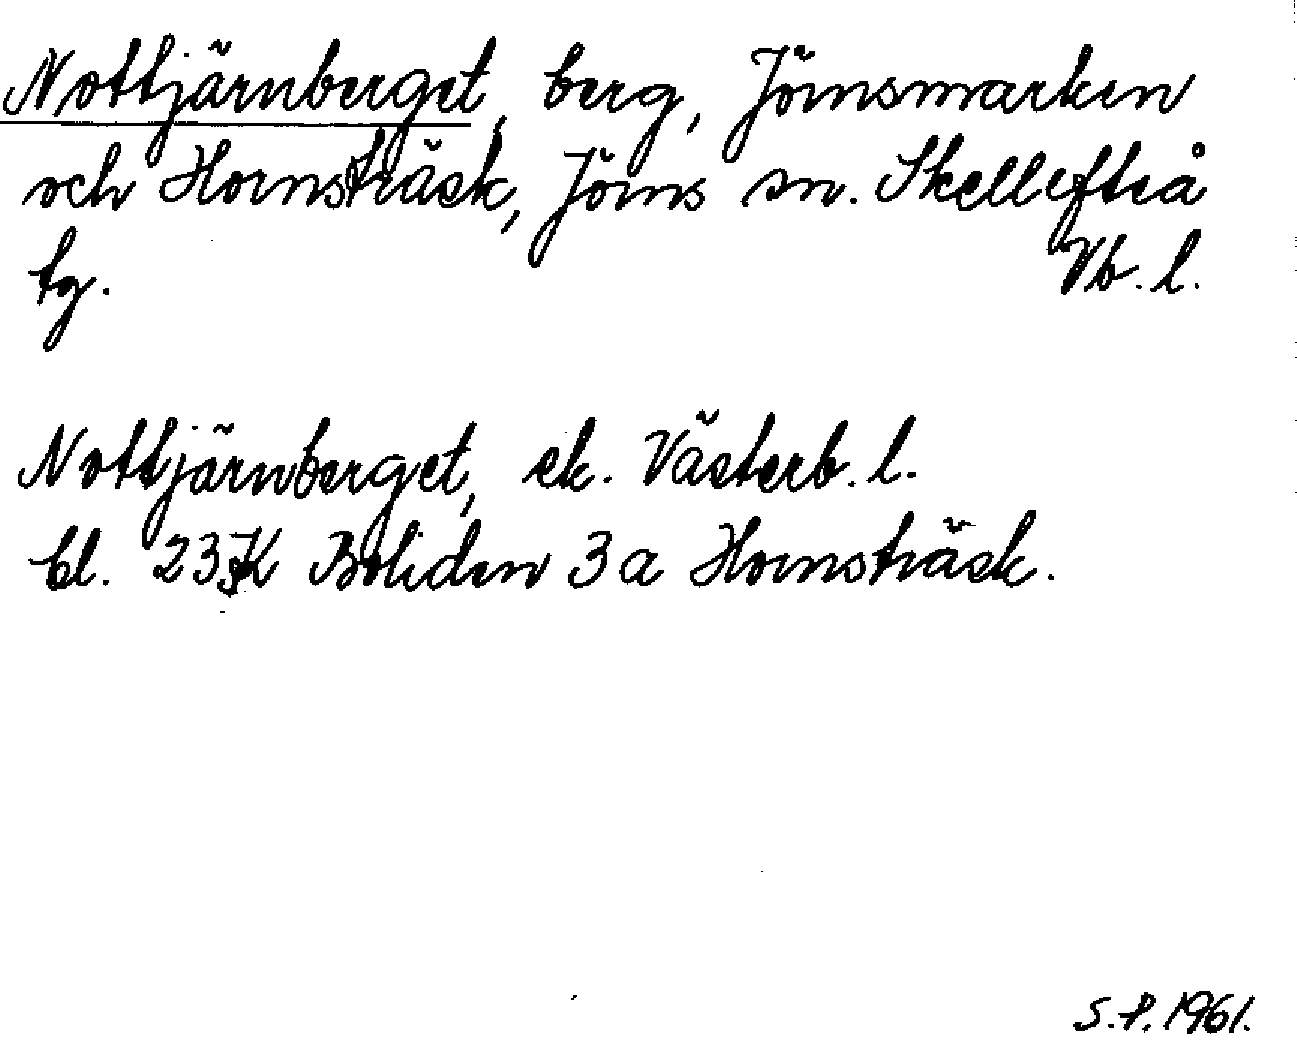 Nottjärnberget, berg, Jörnsmarken
och Hornsträsk, Jörns sn. Skellefteå
tg. Vb. l.
Nottjärnberget, ek. Västerb. l.
bl. 23 K Boliden 3 a Hornsträsk.
S.P. 1961.